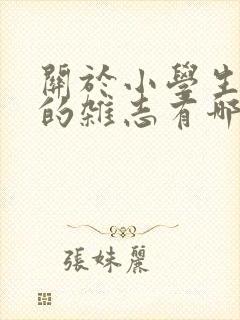 關於小學生
的雜志有哪
張妹麗